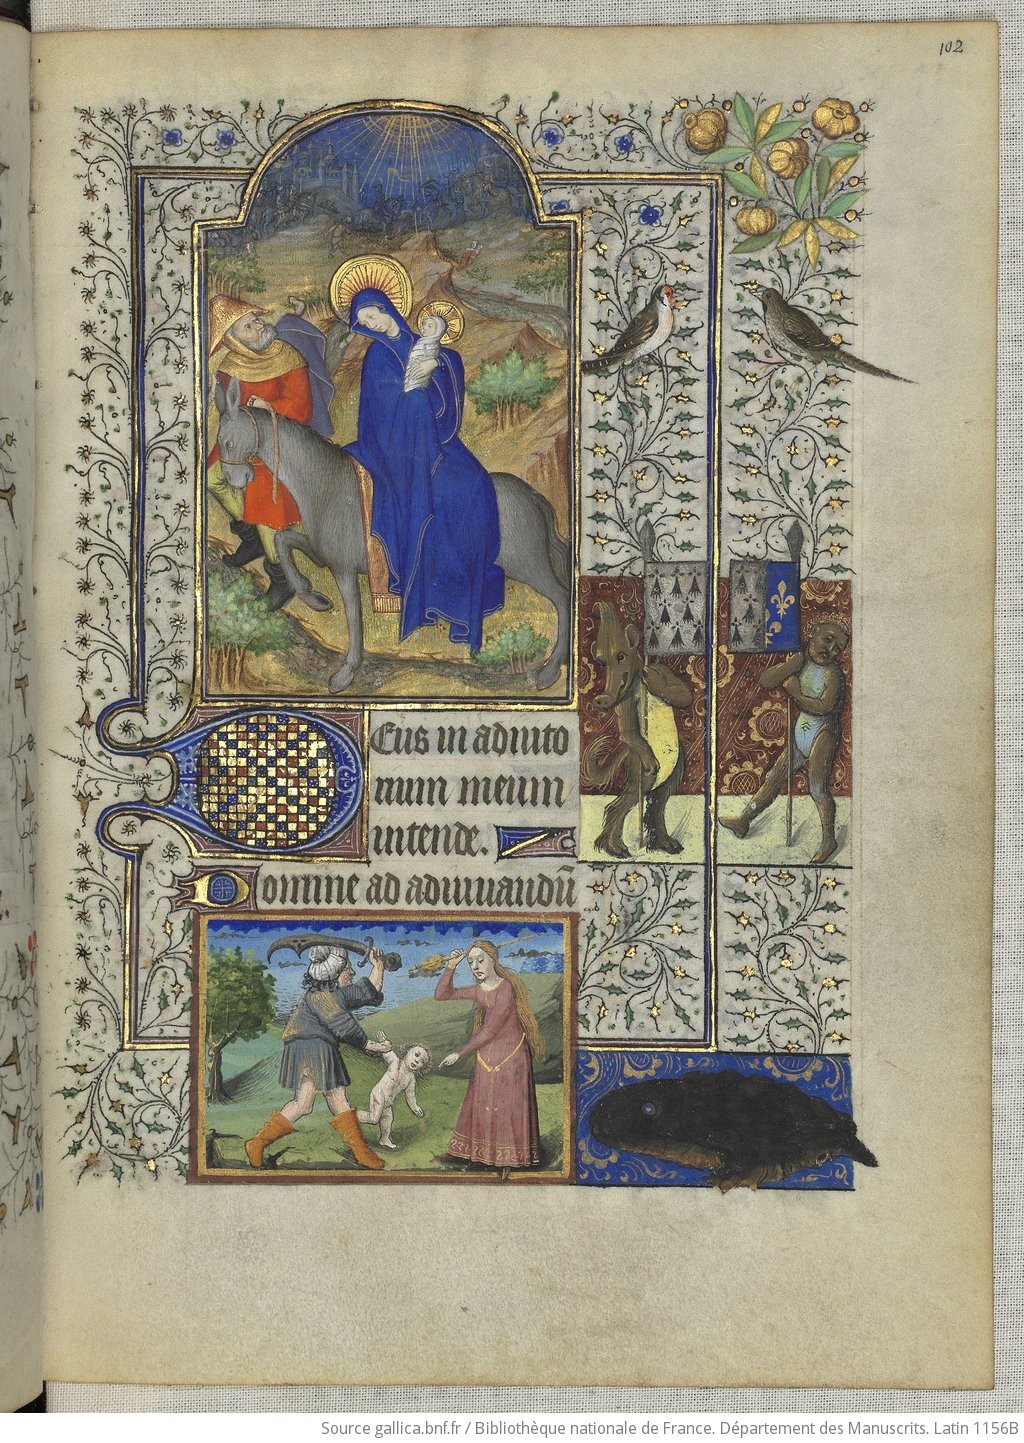 102
Eus in adiuto
rium meum
intende.
Domine ad adiuuandū
Source gallica.bnf.fr / Bibliothèque nationale de France. Département des Manuscrits. Latin 1156B